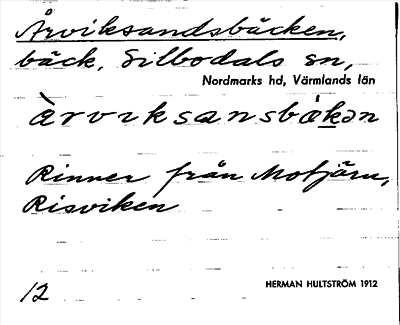 Årviksandsbäcken,
bäck, Silbodals sn,
Nordmarks hd, Värmlands län
Rinner från Motjärn,
Risviken
12
HERMAN HULTSTRÖM 1912